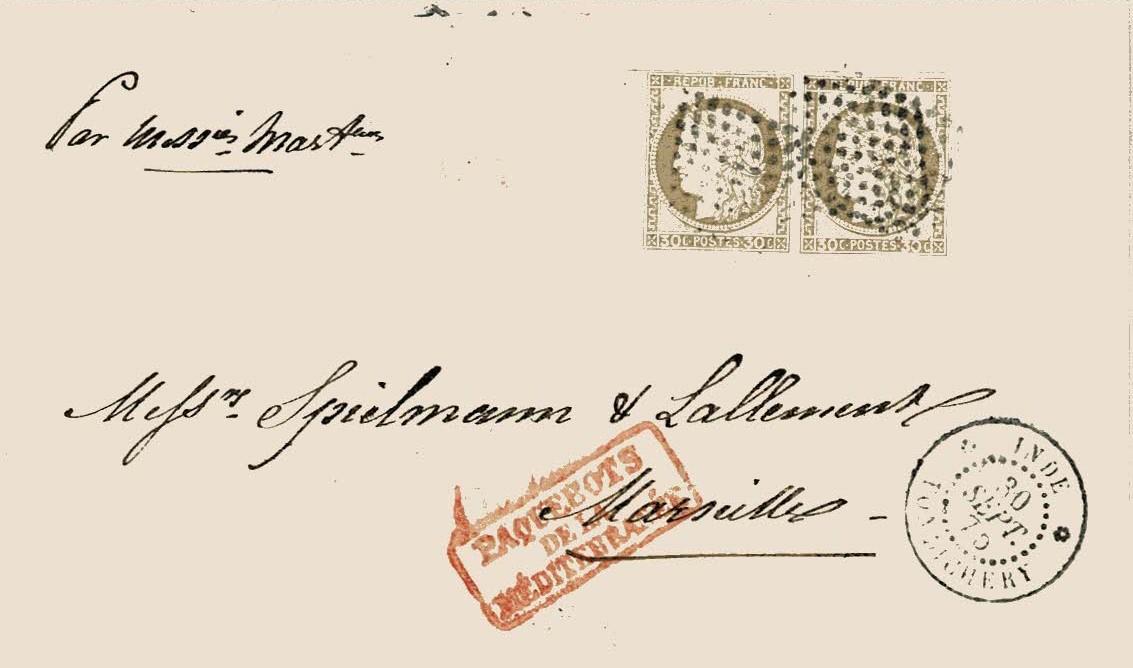 Par Messies Mart
REPUB · FRANC
REPUB · FRANC
30 C · POSTES · 30 C
30 C · POSTES · 30 C
Messrs. Spielmann & Lallement
Marseille -
PAQUEBOTS
DE LA
MÉDITERRANÉE
INDE
30
SEPT.
PONDICHERY